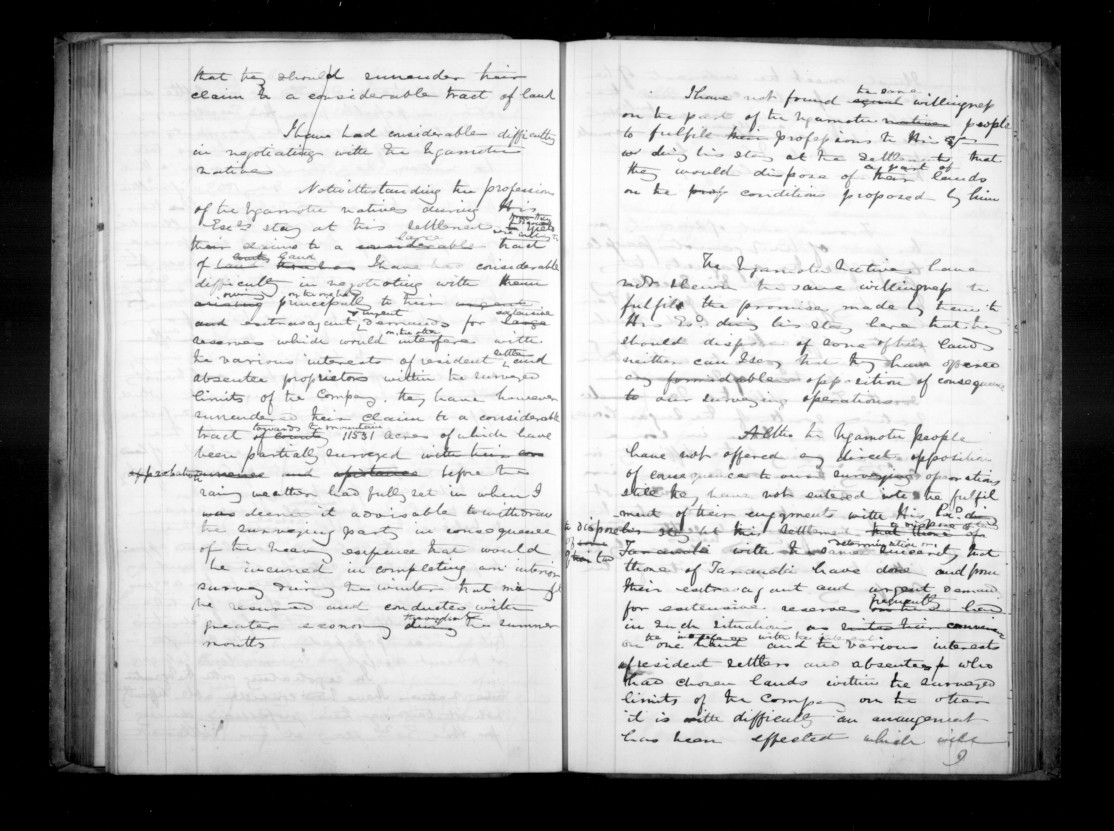 that they should surrender their
claim to a considerable tract of land
I have had considerable difficulty
in negotiating with the Ngamotu
natives
Notwithstanding the professions
of the Ngamotu natives during His
Exc's stay at this settlement
their claims to a considerable large tract
of I have had considerable
difficulty in negotiating with them
arising owing principally to their urgent
and extravagant & urgent demands for large extensive
reserves which would interfere with
the various interests of resident settlers and
absentee proprietors within the surveyed
limits of the Company. they have however
surrendered their claim to a considerable
tract of country towards the mountain 11531 acres of which have
been partially surveyed with their
and before the
rainy weather had fully set in when I
was deem it advisable to withdraw
the surveying party in consequence
of the heavy expence that would
be incurred in completing an interior
survey during the winter that might
be resumed and conducted with
greater economy during throughout the summer
months
I have not found equal the same willingness
on the part of the Ngamotu natives people
to fulfile their professions to His Ex
on during his stay at the settlement, that
they would dispose of a part of their lands
on the conditions proposed by him
The Ngamotu Natives have
not shewn the same willingness to
fulfile the promises made by them to
His Exc during his stay here that they
should dispose of some of their lands
neither can I say that they have offered
any formidable opposition of consequence
to our surveying operations
Altho the Ngamotu people
have not offered any direct opposition
of consequence to our surveying operations
still they have not entered into the fulfil
ment of their engagments with His Exc.
to dispose his stay at this settlement that those of
Taranaki with the same sincerity that
those of Taranaki have done and from
their extravagant and urgent demand
for extensive reserves frequently
in such situations as
on the one hand and the various interests
of resident settlers and absentees who
had chosen lands within the surveyed
limits of the Company on the other
it is with difficulty an arrangement
has been effected which will
9